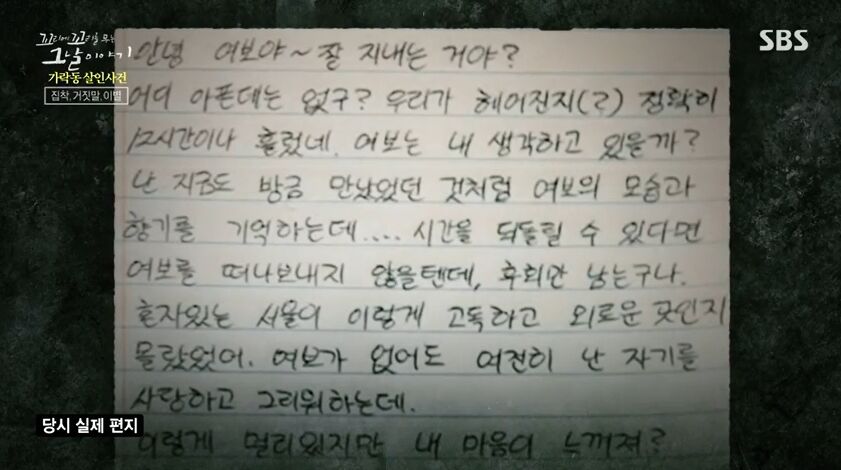 꼬리에 꼬리를 무는
그날 이야기
가락동 살인사건
집착,거짓말,이별
SBS
안녕 여보야~ 잘 지내는 거야?
어디 아픈데는 없구? 우리가 헤어진지(?) 정확히
12시간이나 흘렀네. 여보는 내 생각하고 있을까?
난 지금도 방금 만났었던 것처럼 여보의 모습과
향기를 기억하는데.... 시간을 되돌릴 수 있다면
여보를 떠나보내지 않을텐데, 후회만 남는구나.
혼자있는 서울이 이렇게 고독하고 외로운 곳인지
몰랐었어. 여보가 없어도 여전히 난 자기를
사랑하고 그리워하는데.
이렇게 멀리있지만 내 마음이 느껴져?
당시 실제 편지